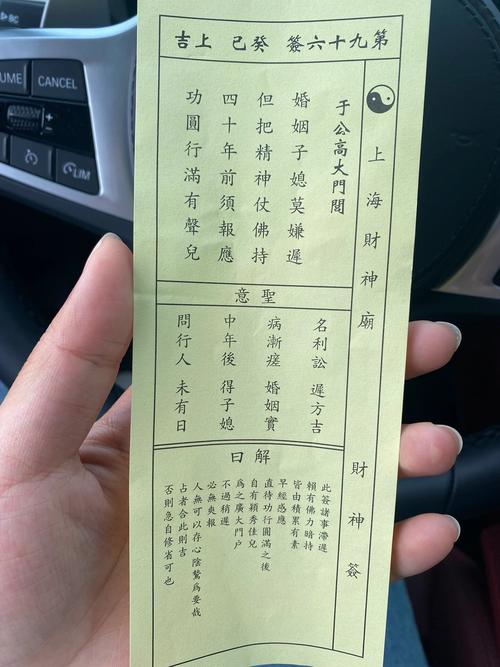 第九十六簽 癸巳 上吉
上海財神廟 財神簽
于公高大門閭
婚姻子媳莫嫌遲
但把精神仗佛持
四十年前須報應
功圓行滿有聲兒
聖意
名利訟 遲方吉
病漸瘥 婚姻實
中年後 得子媳
問行人 未有日
解曰
此簽諸事滯遲
賴有佛力暗持
皆由積累有素
早經感應
直待功行圓滿之後
自有穎秀佳兒
為之廣大門戶
不過稍遲
必無爽報
人無可以存心陰騭為要哉
占者合此則吉
否則急自修省可也
CANCEL
LIM